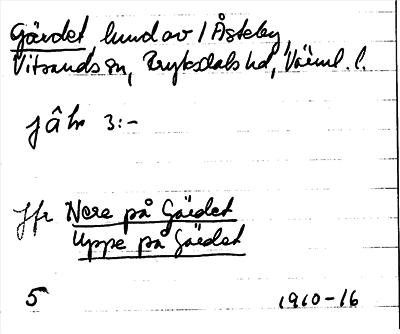 Gärdet lund av 1 Åsteby,
Vitsands sn, Fryksdals hd, Värml. l.
jâḷn 3:-
Jfr Nere på Gärdet
Uppe på Gärdet
5 1910-16